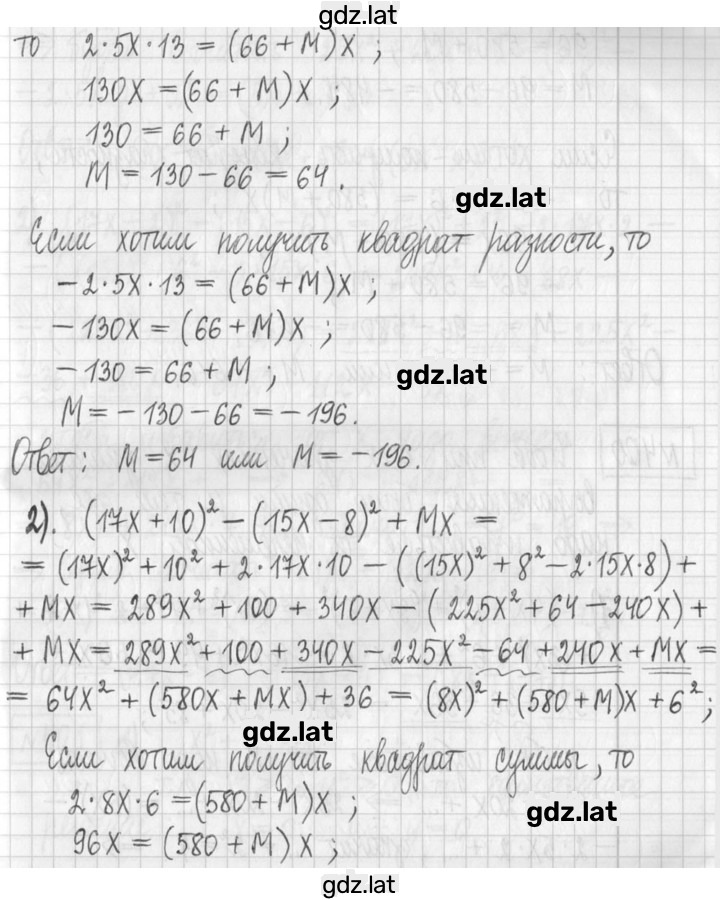 gdz.lat
то 2·5X·13 = (66 + M)X ;
130X = (66 + M)X ;
130 = 66 + M ;
M = 130 − 66 = 64.
gdz.lat
Если хотим получить квадрат разности, то
−2·5X·13 = (66 + M)X ;
−130X = (66 + M)X ;
−130 = 66 + M ;
gdz.lat
M = −130 − 66 = −196.
Ответ: M = 64 или M = −196.
2). (17X + 10)² − (15X − 8)² + MX =
= (17X)² + 10² + 2·17X·10 − ((15X)² + 8² − 2·15X·8) +
+ MX = 289X² + 100 + 340X − (225X² + 64 − 240X) +
+ MX = 289X² + 100 + 340X − 225X² − 64 + 240X + MX =
= 64X² + (580X + MX) + 36 = (8X)² + (580 + M)X + 6² ;
gdz.lat
Если хотим получить квадрат суммы, то
2·8X·6 = (580 + M)X ;
gdz.lat
96X = (580 + M)X ;
gdz.lat